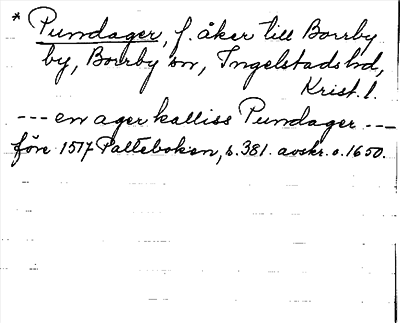 * Pundager, f. åker till Borrby
by, Borrby sn, Ingelstads hd,
Krist. l.
--- en ager kalliss Pundager ---
före 1517 Palteboken, s. 381. avskr. o. 1650.